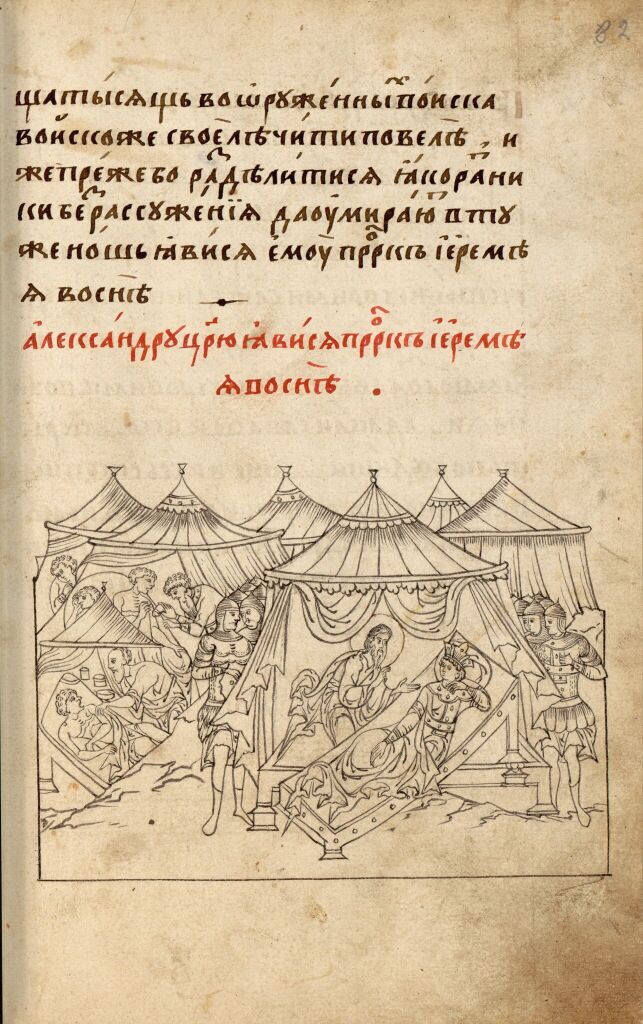 82
щатысящь во ѡруже́нны по́иска
во́йско же своѐ лѣчи́ти повелѣ̀, и
же пре́же бо раздѣли́тися ꙗ́ко ра́ни
ки бе рассуже́нїя да оумира́ю в ту
же но́щь ꙗви́ся ему̀ прⷪ҇ркъ і҆ереме́
я во снѣ̀
а҆леѯа́ндру цр҃ю ꙗви́ся прⷪ҇ркъ і҆ереме́
я во снѣ̀.